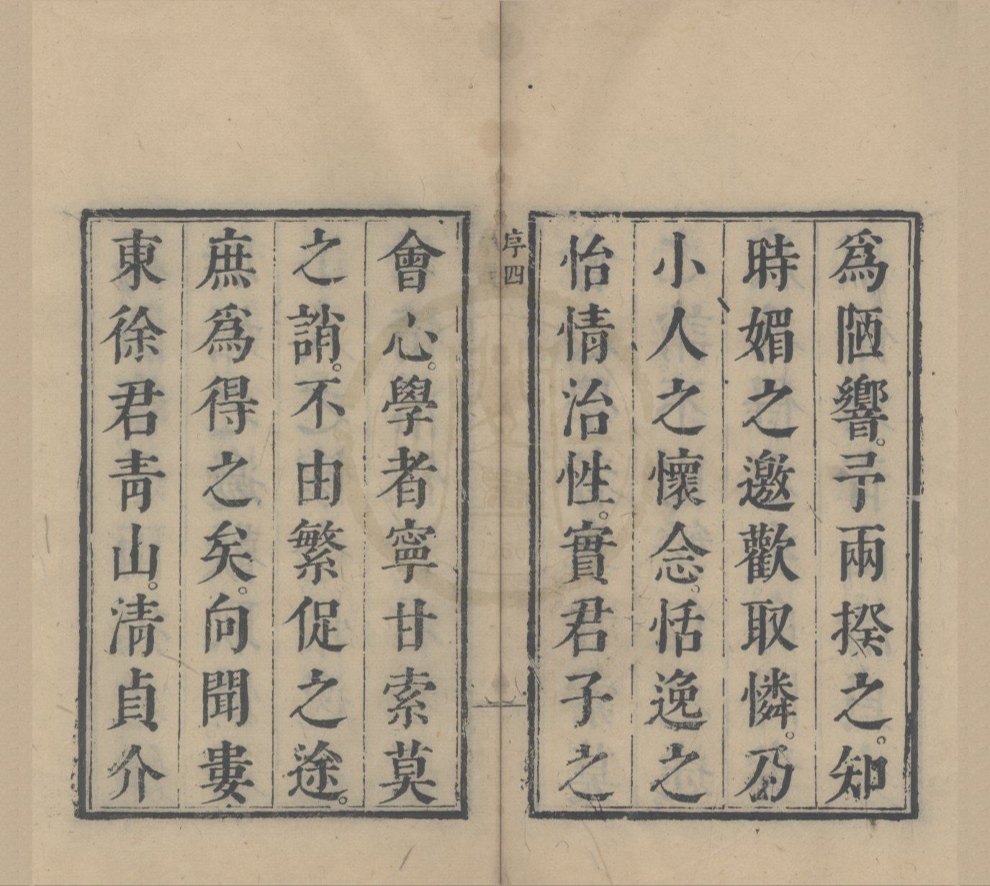 爲陋響。予兩揆之。知
時媚之邀歡取憐。乃
小人之懷念。恬逸之
怡情治性。實君子之
序四
會心。學者寧甘索莫
之誚。不由繁促之途。
庶爲得之矣。向聞婁
東徐君青山。清貞介